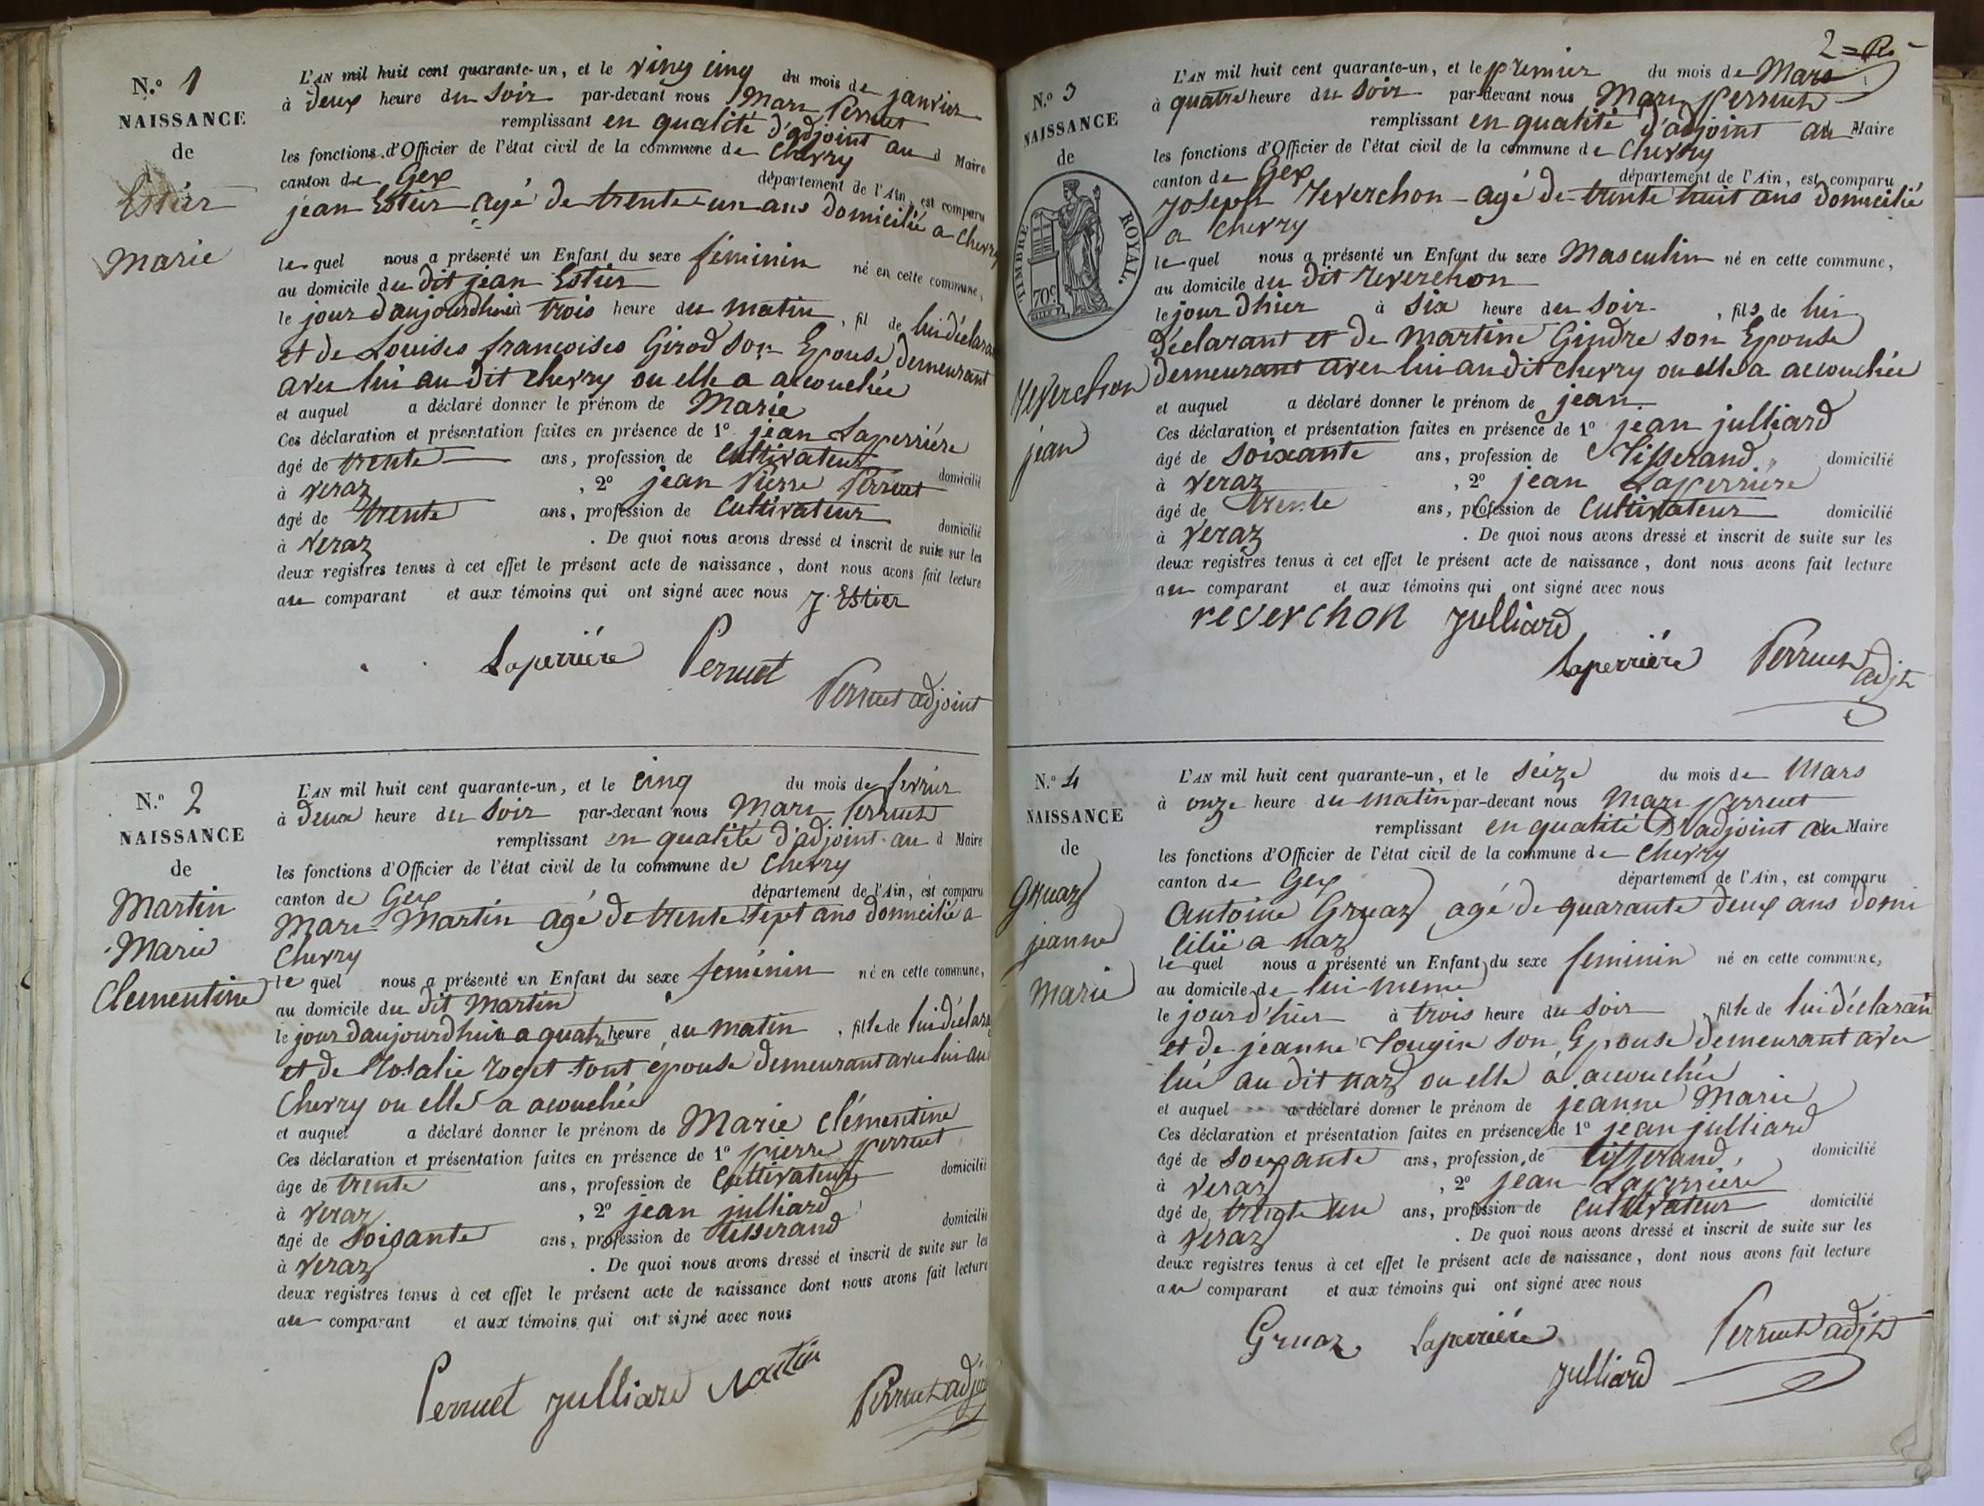 N.º 1
NAISSANCE
de
Estier
Marie
L'AN mil huit cent quarante-un, et le vingt cinq du mois de janvier
à deux heure du soir par-devant nous Marc Perruet
remplissant en qualité d'adjoint au d Maire
les fonctions d'Officier de l'état civil de la commune de Chevry
canton de Gex département de l'Ain, est comparu
jean Estier agé de trente-un ans domicilié a Chevry
le quel nous a présenté un Enfant du sexe féminin né en cette commune,
au domicile du dit jean Estier
le jour d'aujourdhui à trois heure du matin, fil de lui déclarant
et de Louises françoises Girod son Epouse demeurant
avec lui au dit chevry ou elle a accouchée
et auquel a déclaré donner le prénom de Marie
Ces déclaration et présentation faites en présence de 1º jean Laperriére
âgé de trente ans, profession de Cultivateur domicilié
à veraz, 2º jean Pierre Perruet
âgé de trente ans, profession de Cultivateur domicilié
à Veraz. De quoi nous avons dressé et inscrit de suite sur les
deux registres tenus à cet effet le présent acte de naissance, dont nous avons fait lecture
au comparant et aux témoins qui ont signé avec nous J. Estier
Laperriére Perruet
Perruet adjoint
N.º 2
NAISSANCE
de
Martin
Marie
Clementine
L'AN mil huit cent quarante-un, et le cinq du mois de fevrier
à deux heure du soir par-devant nous Marc Perruet
remplissant en qualité d'adjoint au d Maire
les fonctions d'Officier de l'état civil de la commune de Chevry
canton de Gex département de l'Ain, est comparu
Marc Martin agé de trente sept ans domicilié a
Chevry
le quel nous a présenté un Enfant du sexe feminin né en cette commune,
au domicile du dit Martin
le jour d'aujourdhui a quatre heure du matin, fille de lui déclarant
et de Rosalie Roget son épouse demeurant avec lui au
Chevry ou elle a acouchée
et auquel a déclaré donner le prénom de Marie clémentine
Ces déclaration et présentation faites en présence de 1º pierre perruet
âge de trente ans, profession de Cultivateur domicilié
à veraz, 2º jean julliard
âgé de soisante ans, profession de tisserand domicilié
à veraz. De quoi nous avons dressé et inscrit de suite sur les
deux registres tenus à cet effet le présent acte de naissance dont nous avons fait lecture
au comparant et aux témoins qui ont signé avec nous
Perruet julliard Martin
Perruet adj
2 =
N.º 3
NAISSANCE
de
TIMBRE ROYAL.
70c
Reverchon
jean
L'AN mil huit cent quarante-un, et le premier du mois de Mars
à quatre heure du soir par-devant nous Marc perruet
remplissant en qualité d'adjoint au Maire
les fonctions d'Officier de l'état civil de la commune de Chevry
canton de Gex département de l'Ain, est comparu
joseph Reverchon agé de trente huit ans domicilié
a chevry
le quel nous a présenté un Enfant du sexe Masculin né en cette commune,
au domicile du dit reverchon
le jour d'hier à six heure du soir, fils de lui
déclarant et de Martine Gindre son Epouse
demeurant avec lui au dit chevry ou elle a accouchée
et auquel a déclaré donner le prénom de jean
Ces déclaration et présentation faites en présence de 1º jean julliard
âgé de soixante ans, profession de tisserand domicilié
à veraz, 2º jean Laperriere
âgé de trente ans, profession de Cultivateur domicilié
à veraz. De quoi nous avons dressé et inscrit de suite sur les
deux registres tenus à cet effet le présent acte de naissance, dont nous avons fait lecture
au comparant et aux témoins qui ont signé avec nous
reverchon julliard
Laperriére Perruet adjt
N.º 4
NAISSANCE
de
Gruaz
jeanne
Marie
L'AN mil huit cent quarante-un, et le seize du mois de Mars
à onze heure du matin par-devant nous Marc perruet
remplissant en qualité D'adjoint au Maire
les fonctions d'Officier de l'état civil de la commune de chevry
canton de Gex département de l'Ain, est comparu
Antoine Gruaz agé de quarante deux ans domi
cilié a naz
le quel nous a présenté un Enfant du sexe feminin né en cette commune,
au domicile de lui meme
le jour d'hier à trois heure du soir fille de lui déclarant
et de jeanne Tougin son Epouse demeurant avec
lui au dit naz ou elle a accouchée
et auquel a déclaré donner le prénom de jeanne Marie
Ces déclaration et présentation faites en présence de 1º jean julliard
âgé de soixante ans, profession de tisserand, domicilié
à veraz, 2º jean Laperriére
âgé de ans, profession de cultivateur domicilié
à veraz. De quoi nous avons dressé et inscrit de suite sur les
deux registres tenus à cet effet le présent acte de naissance, dont nous avons fait lecture
au comparant et aux témoins qui ont signé avec nous
Gruaz Laperriére Perruet adjt
julliard